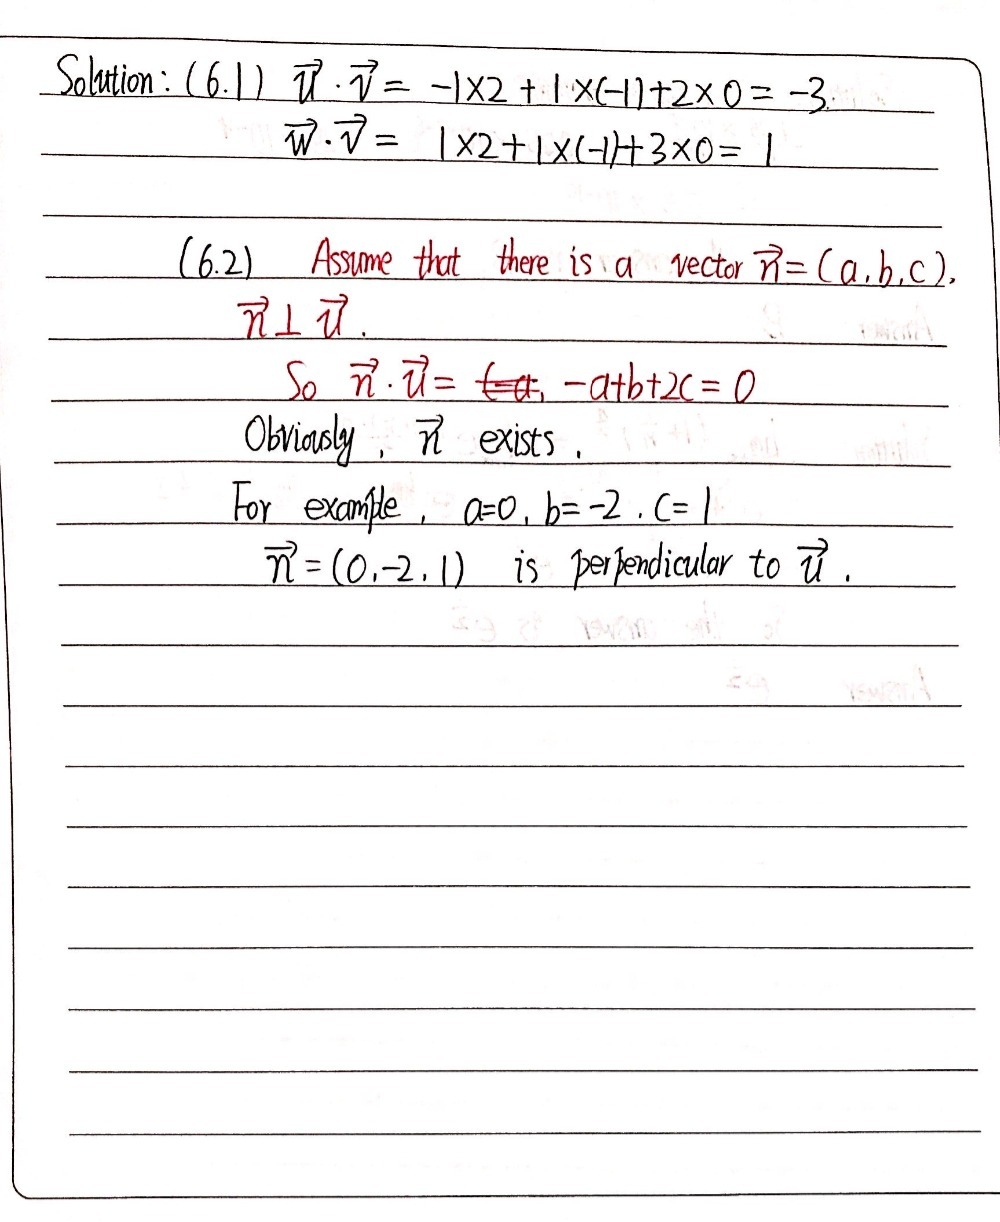 Solution: (6.1) $\vec{u} \cdot \vec{v} = -1 \times 2 + 1 \times (-1) + 2 \times 0 = -3.$
$\vec{w} \cdot \vec{v} = 1 \times 2 + 1 \times (-1) + 3 \times 0 = 1$
(6.2) Assume that there is a vector $\vec{n} = (a, b, c),$
$\vec{n} \perp \vec{u}.$
So $\vec{n} \cdot \vec{u} = -a + b + 2c = 0$
Obviously, $\vec{n}$ exists.
For example, $a = 0, b = -2, c = 1$
$\vec{n} = (0, -2, 1)$ is perpendicular to $\vec{u}.$